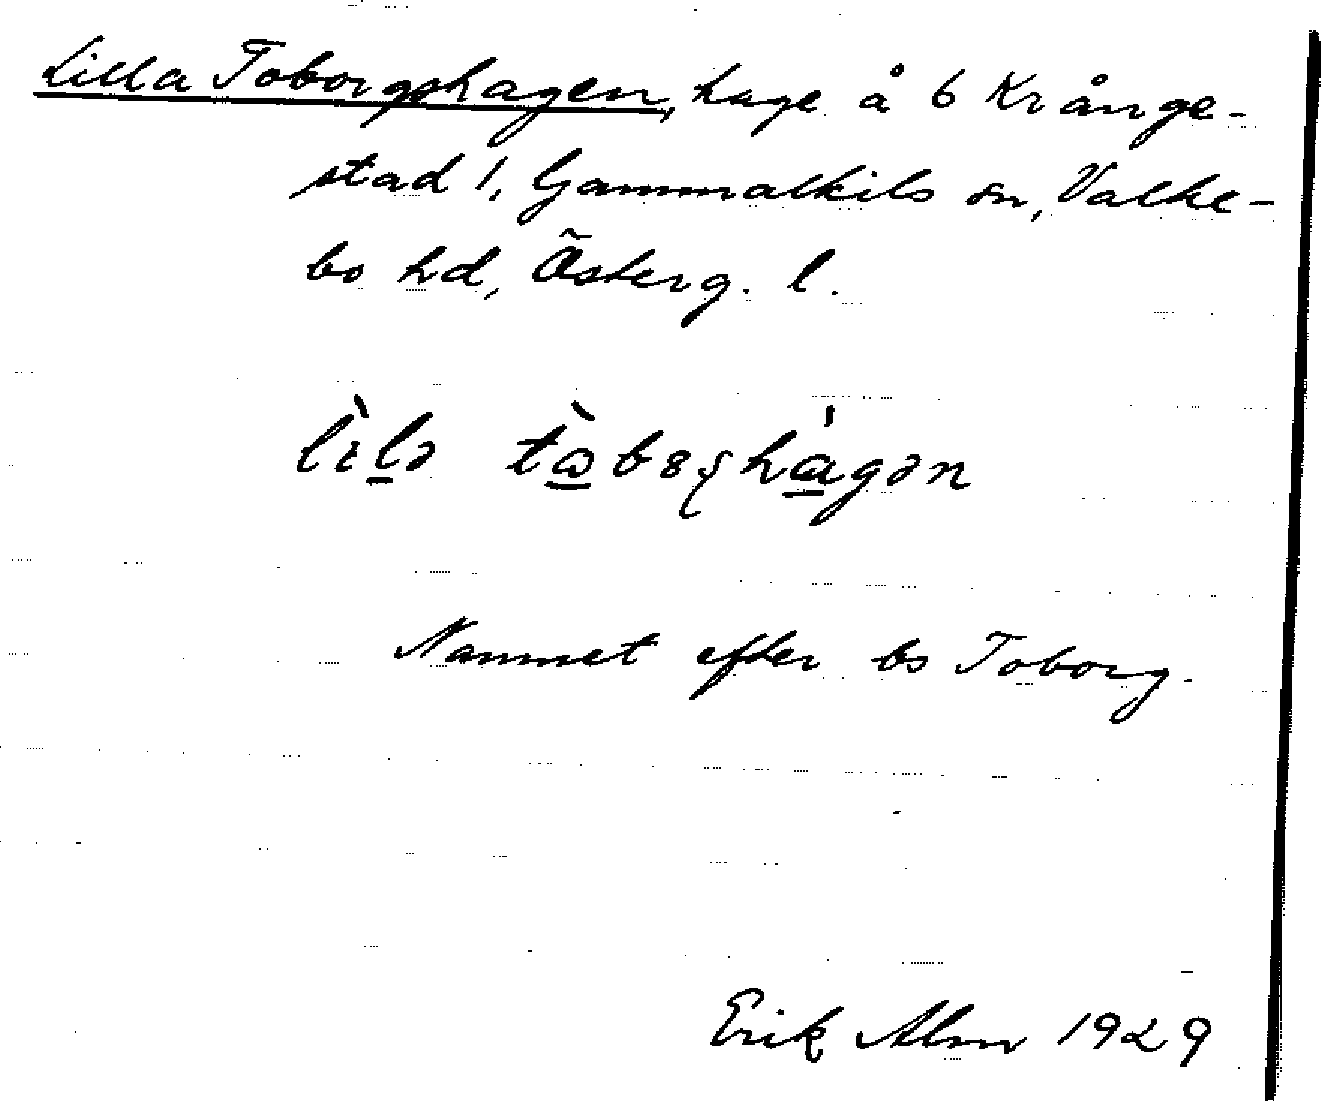 Lilla Toborgshagen, hage å 6 Krånge-
stad 1, Gammalkils sn, Valke-
bo hd, Österg. l.
Namnet efter bs Toborg.
Erik Alm 1929